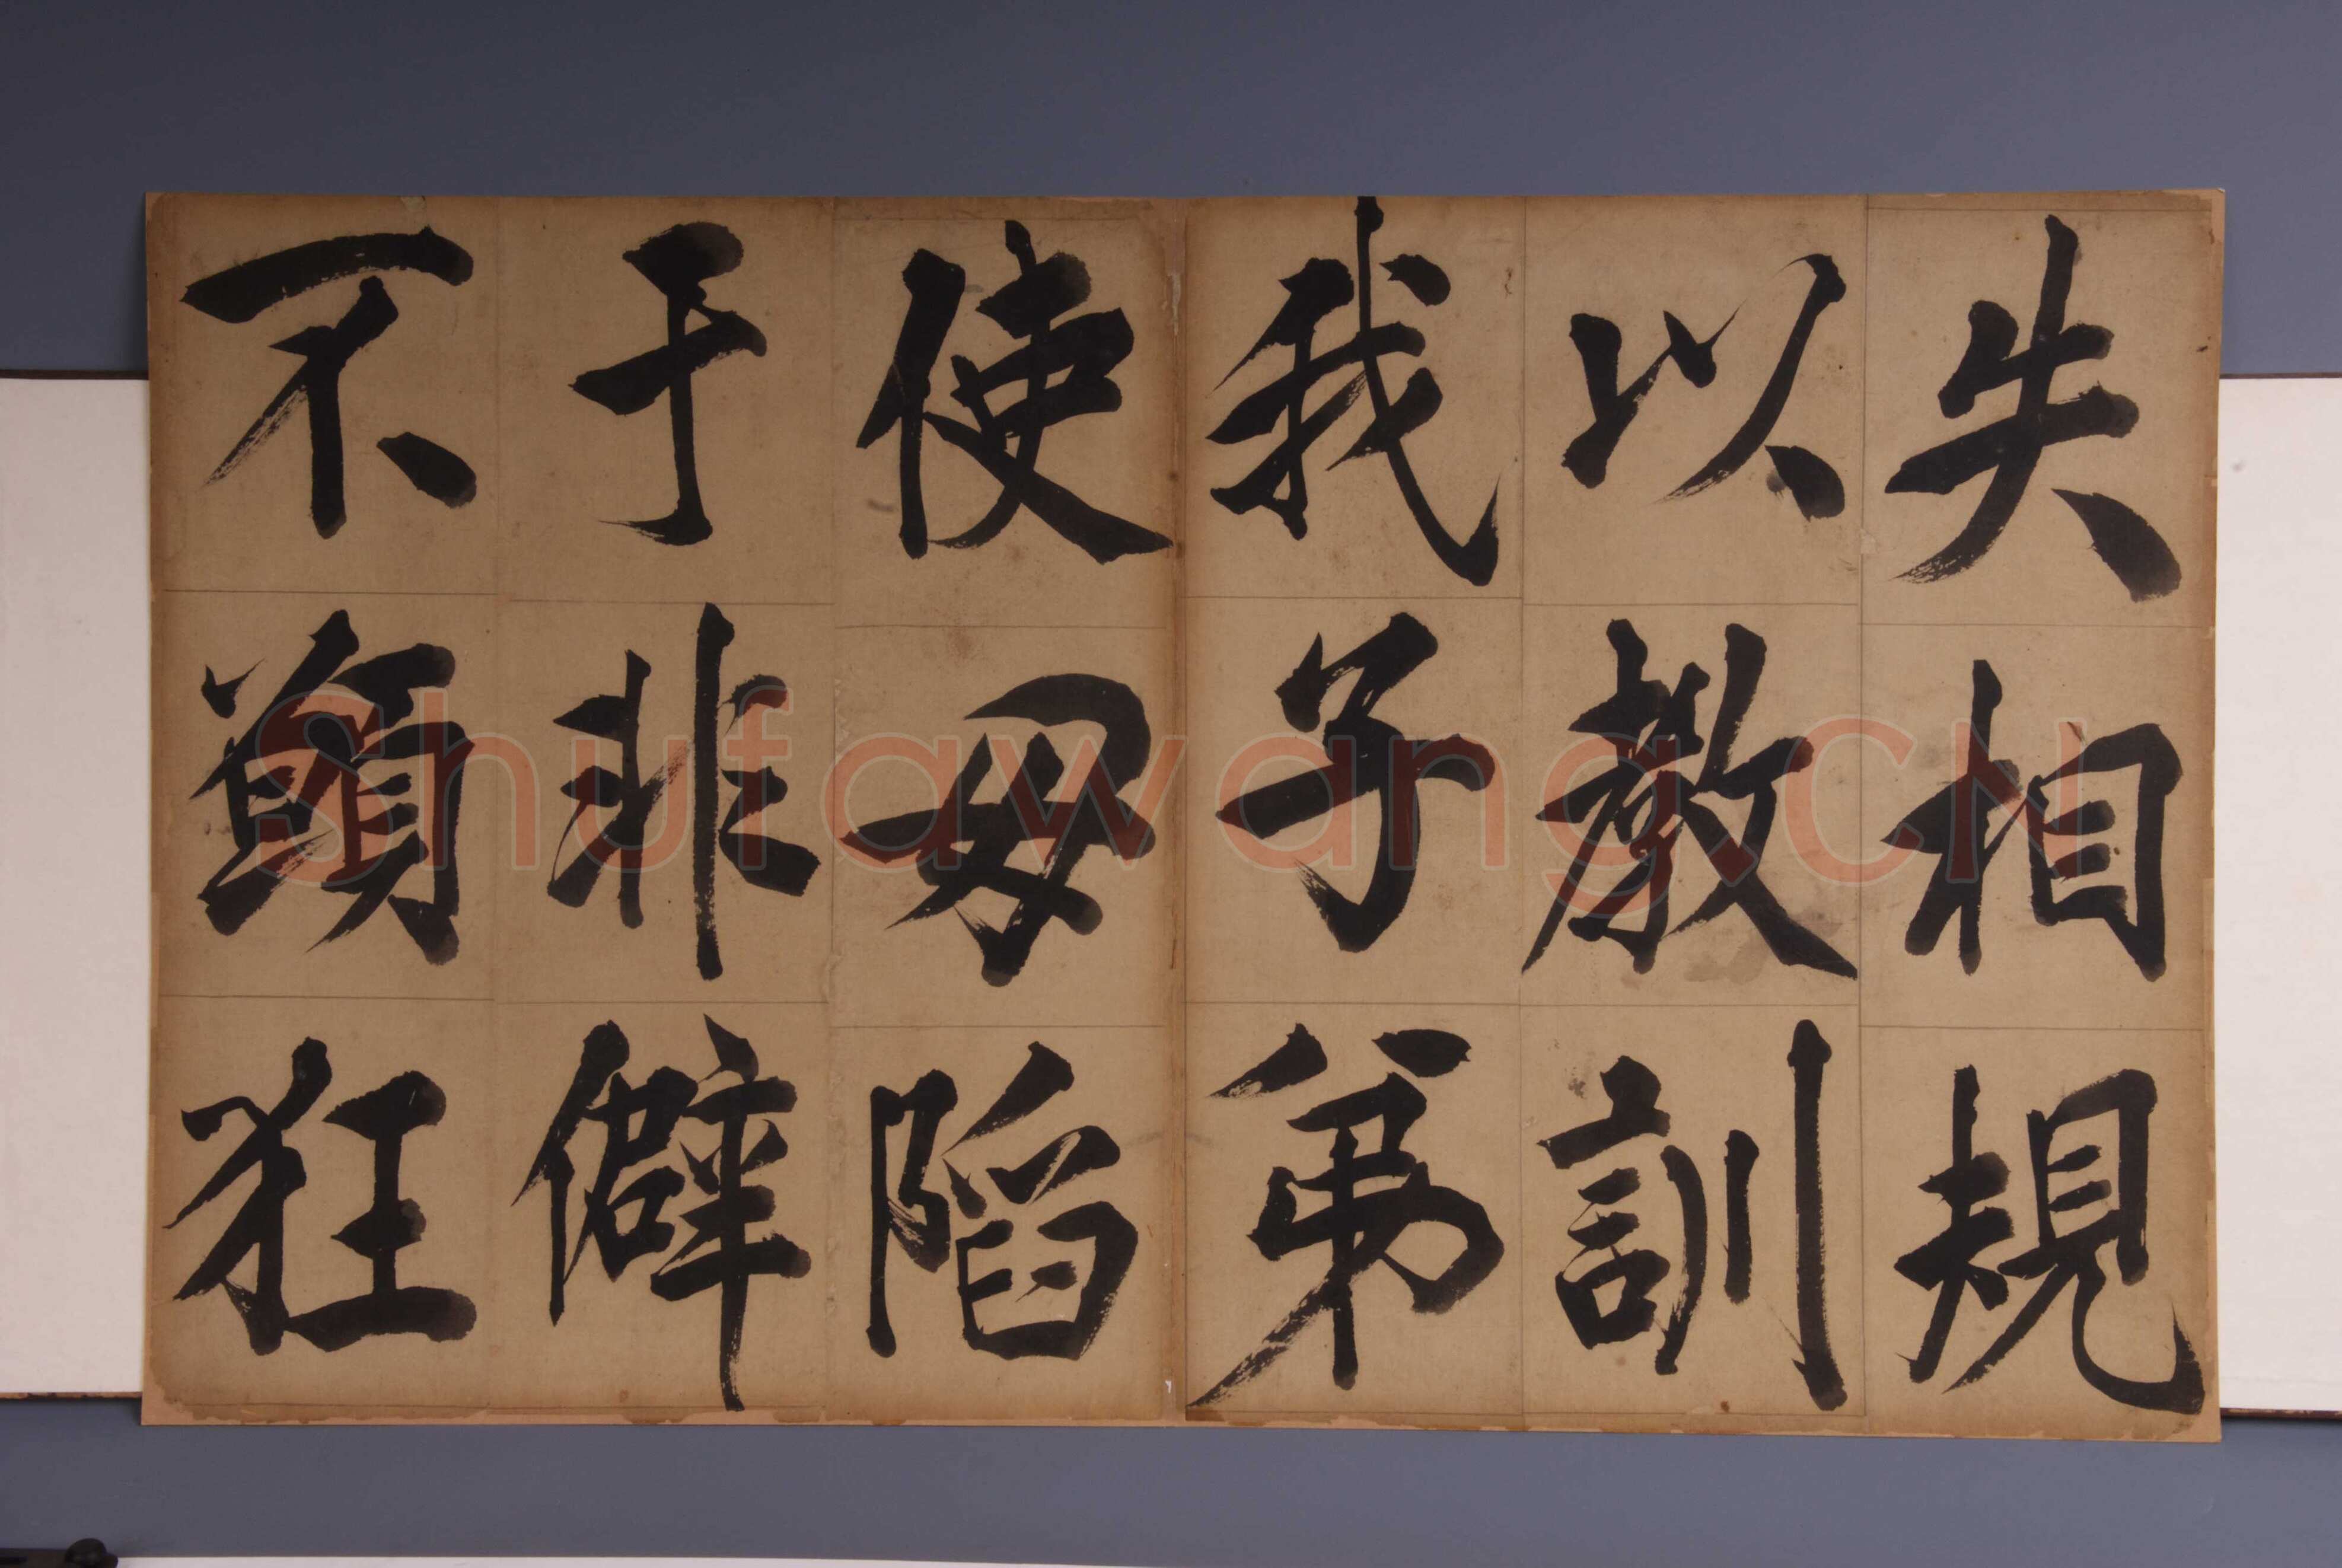 失相規
以教訓
我子弟
使毋陷
于非僻
不 狂
Shufawang.CN